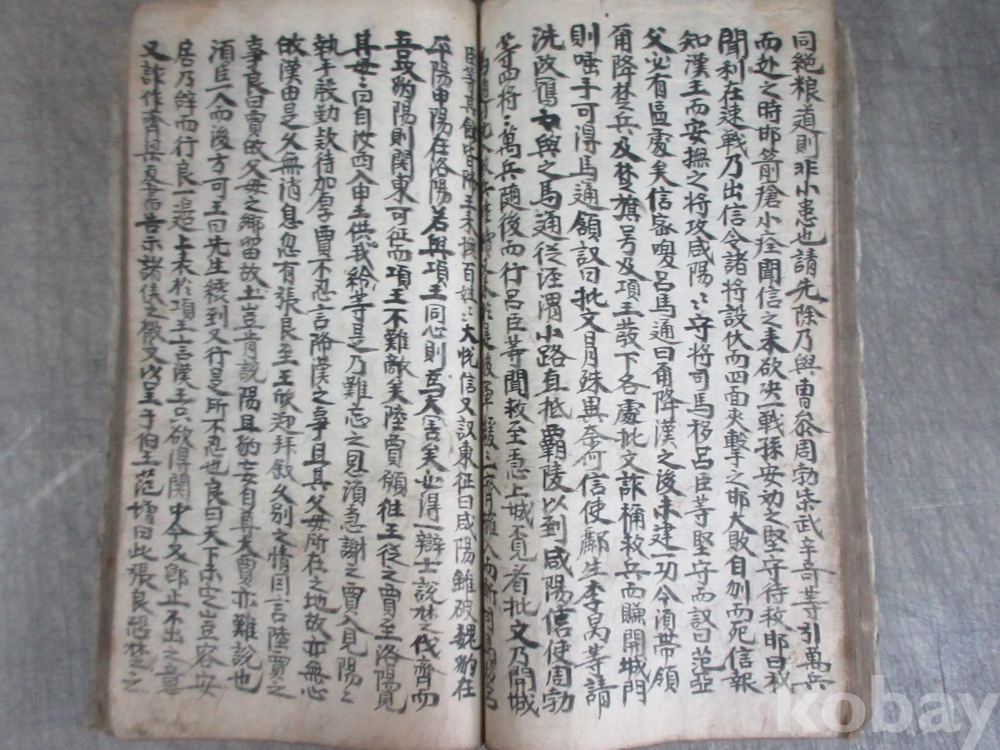 同絶粮道則非小患也請先除乃與曺參周勃柴武辛奇等引萬兵
而赴之時邯箭瘡小痊聞信之来欲決一戰孫安勸之堅守待救邯曰我
聞利在速戰乃出信令諸將設伏而四面夾擊之邯大敗自刎而死信報
知漢王而安撫之將攻咸陽〻守將司馬移呂臣等堅守而議曰范亞
父必有區處矣信密嗖呂馬通曰甭降漢之後未建一功今須帶領
甭降楚兵及楚旗号及項王發下各處批文詐稱救兵而賺開城門
則唾手可得馬通領諾曰批文日月殊異奈何信使酈生李昺等請
洗改鴈與之馬通從涇渭小路直抵覇陵以到咸陽信使周勃
等四將二萬兵随後而行呂臣等聞救至急上城覓看批文乃開城
臣等其餘皆降王来撫百姓〻大悅信又議東征曰咸陽雖破魏豹在
平陽申陽在洛陽若與項王同心則爲大害矣如得一辯士說林之伐齊而
吾攻豹陽則関東可征而項王不難敵矣陸賈願往王從之賈至洛陽覓
其母〻曰自汝西入申王供我給等是乃難忘之恩須急謝之賈入見陽〻
執手殷勤款待加厚賈不忍言降漢之事且其父母所在之地故亦無心
故漢由是久無消息忽有張良至王欣迎拜叙久別之情因言陸賈之
事良曰賈依父母之鄉留故土豈肯說陽且豹妄自尊大賈亦難說也
須臣一人而後方可王曰先生纔到又行是所不忍也良曰天下未定豈容安
居乃辞而行良一邊上表於項王言漢王只欲得関中今又即止不出之意
又詐作齊梁反書而告示諸侯之檄文以呈于伯王范增曰此張良恐林之之
kobay